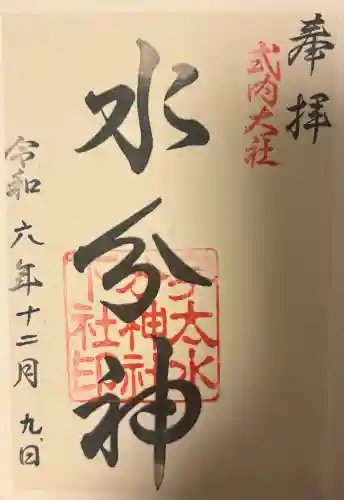 奉拝
式内大社
水分神
宇太水
分神社
下社印
令和六年十二月九日